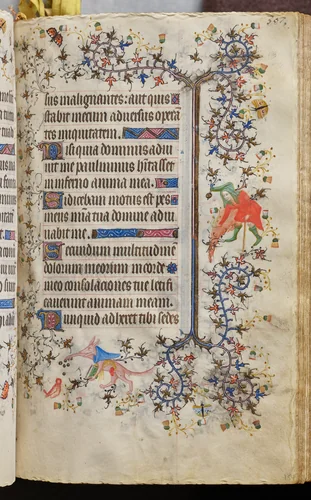 sus malignantes: aut quis
stabit mecum adversus opera
tes iniquitatem.
Nisi quia dominus adiu
vit me paulominus hitasset
in inferno anima mea.
Si dicebam motus est pes
meus mia tua domine adiu
vabat me.
Secundum multitudine
dolorum meorum in corde
meo consolaciones tue leti
caverunt animam meam.
Nunquid adheret tibi sedes